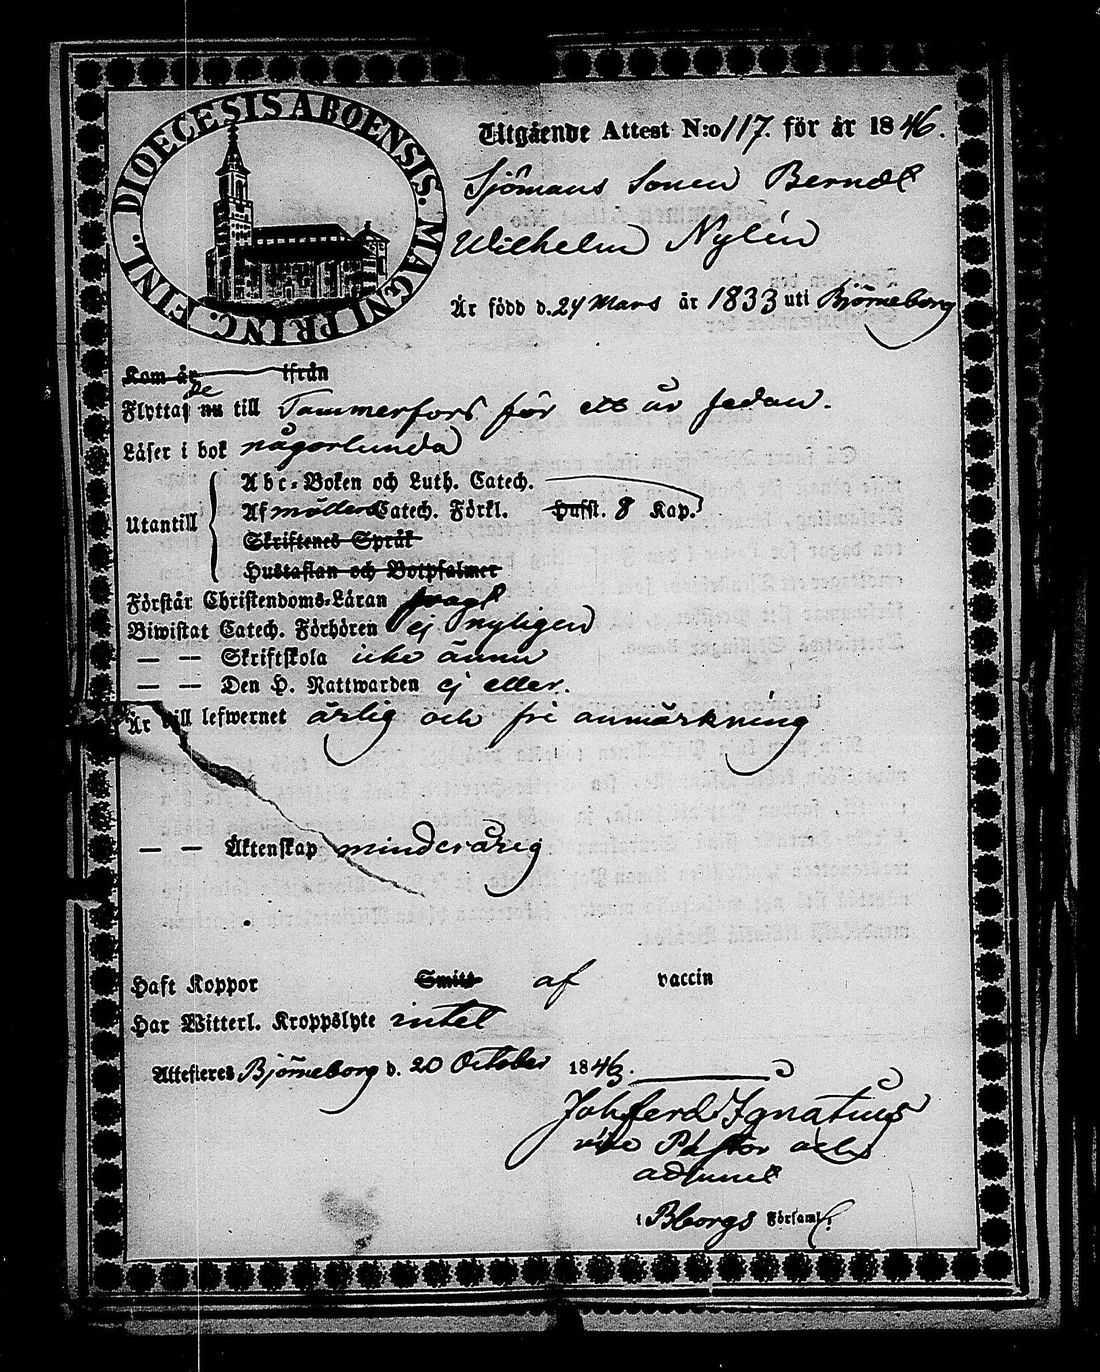 DIOECESIS ABOENSIS. MAGNI PRINC. FINL.
Utgående Attest N:o 117. för år 1846.
Sjömans Sonen Berndt
Wilhelm Nylén
Är född d. 24 Mars år 1833 uti Björneborg
Kom år ifrån
Flyttade nu till Tammerfors för ett år sedan.
Läser i bok någorlunda
Utantill
Abc-Boken och Luth. Catech.
Af Möllers Catech. Förkl. Hufst. 8 Kap.
Skriftenes Språk
Hustaflan och Botpsalmer
Förstår Christendoms-Läran svagt
Biwistat Catech. Förhören ej nyligen
— — Skriftskola icke ännu
— — Den H. Nattwarden ej eller.
Är till lefwernet ärlig och fri anmärkning
— — Äktenskap minderårig
Haft Koppor Smitt af vaccin
Har Witterl. Kroppslyte intet
Attesteres Björneborg d. 20 October 1846.
Joh ferd Ignatius
vice Pastor och
adjunct
i Bborgs Församl.